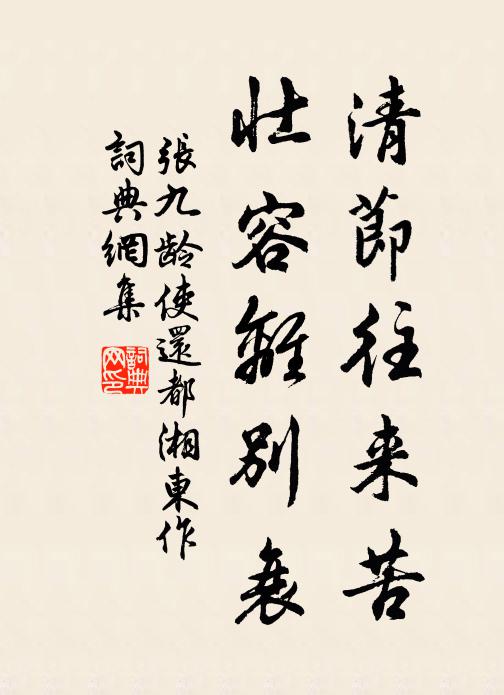 清節往来苦
壮容離別衰
張九齡使還都湘東作
詞典網集
詞典
网印